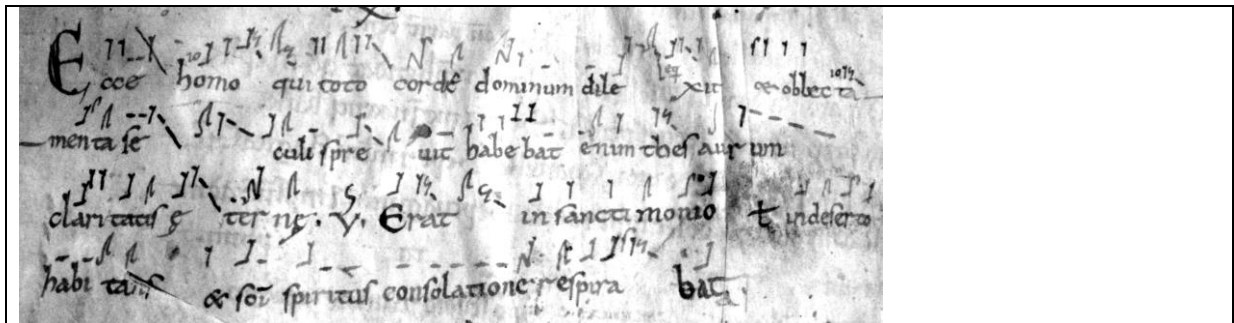 Ecce homo qui toto corde dominum dilexit & oblecta
menta seculi spreuit habebat enim thesaurum
claritatis ęternę. V. Erat in sanctimonio t in deserto
habitans & sc̄i spiritus consolatione respirabat.